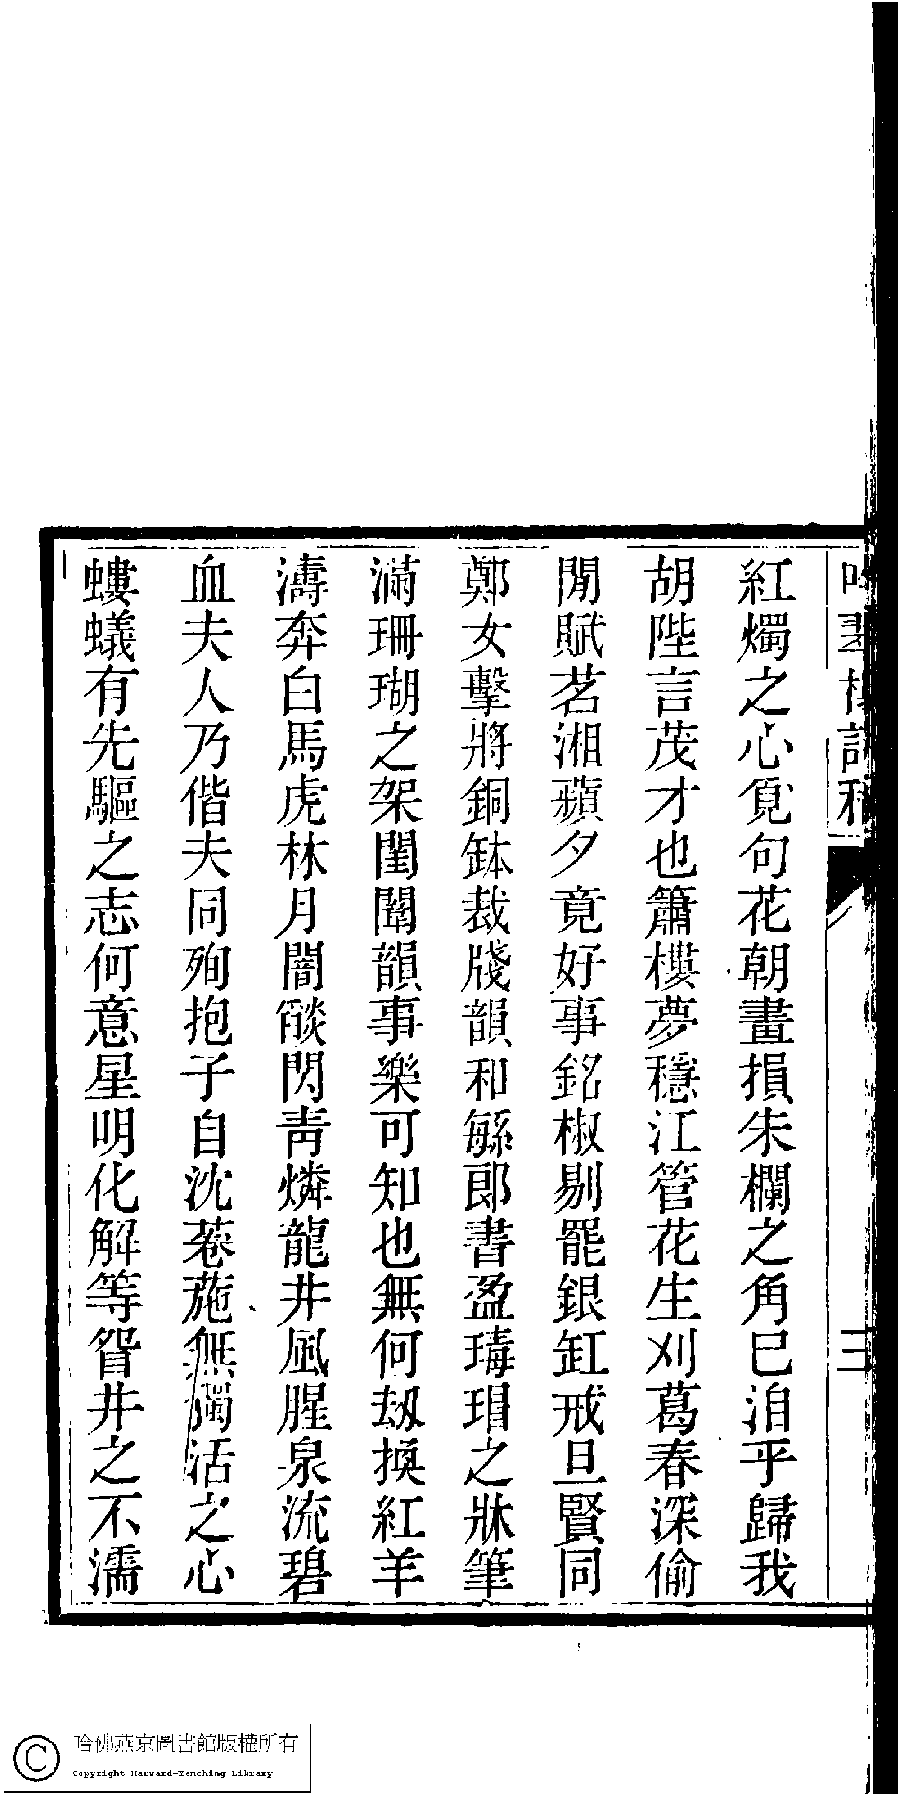 紅燭之心覓句花朝畫損朱欄之角巳洎乎歸我
胡陛言茂才也簫樓夢穩江管花生刈葛春深偷
閒賦茗湘蘋夕竟好事銘椒剔罷銀缸戒旦賢同
鄭女擊將銅鉢裁牋韻和緐郎書盈瑇瑁之牀筆
滿珊瑚之架閨闈韻事樂可知也無何刼換紅羊
濤奔白馬虎林月闇燄閃靑燐龍井風腥泉流碧
血夫人乃偕夫同殉抱子自沈菤葹無獨活之心
螻蟻有先驅之志何意星明化解等眢井之不濡
三
哈佛燕京圖書館版權所有
Copyright Harvard-Yenching Library